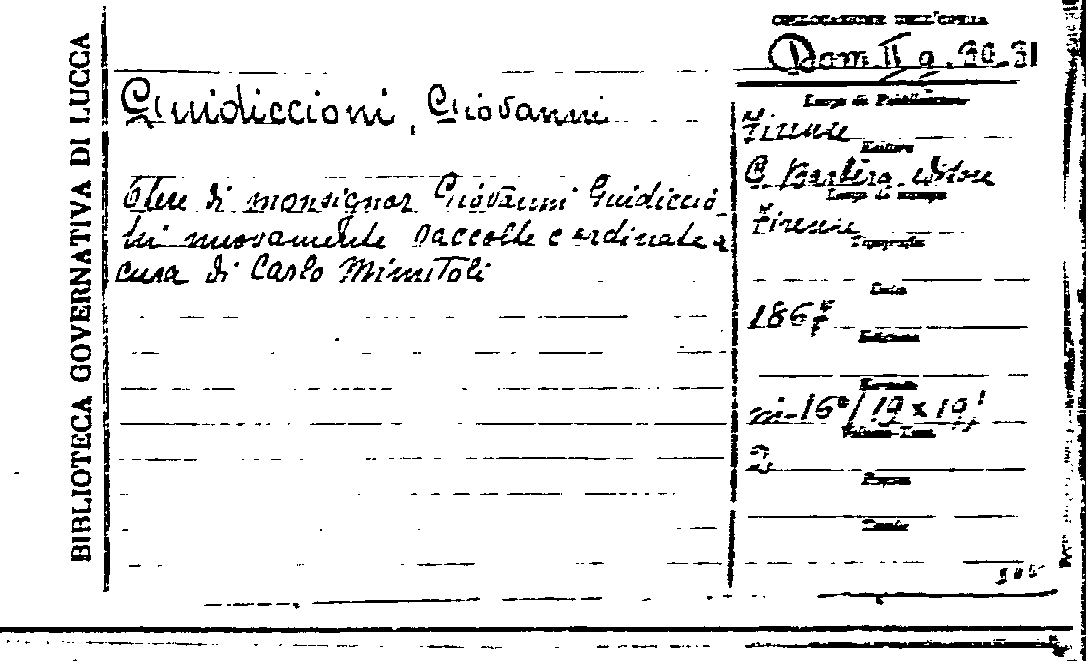 BIBLIOTECA GOVERNATIVA DI LUCCA
COLLOCAZIONE DELL'OPERA
Dom. II g. 30-31
Guidiccioni, Giovanni
Luogo di Pubblicazione
Firenze
Editore
G. Barbèra editore
Luogo di stampa
Firenze
Tipografia
Opere di monsignor Giovanni Guidiccio
ni nuovamente raccolte e ordinate a
cura di Carlo Minutoli
Data
1867
Edizione
Formato
in-16°/
Volume-Tomi
2
Prezzo